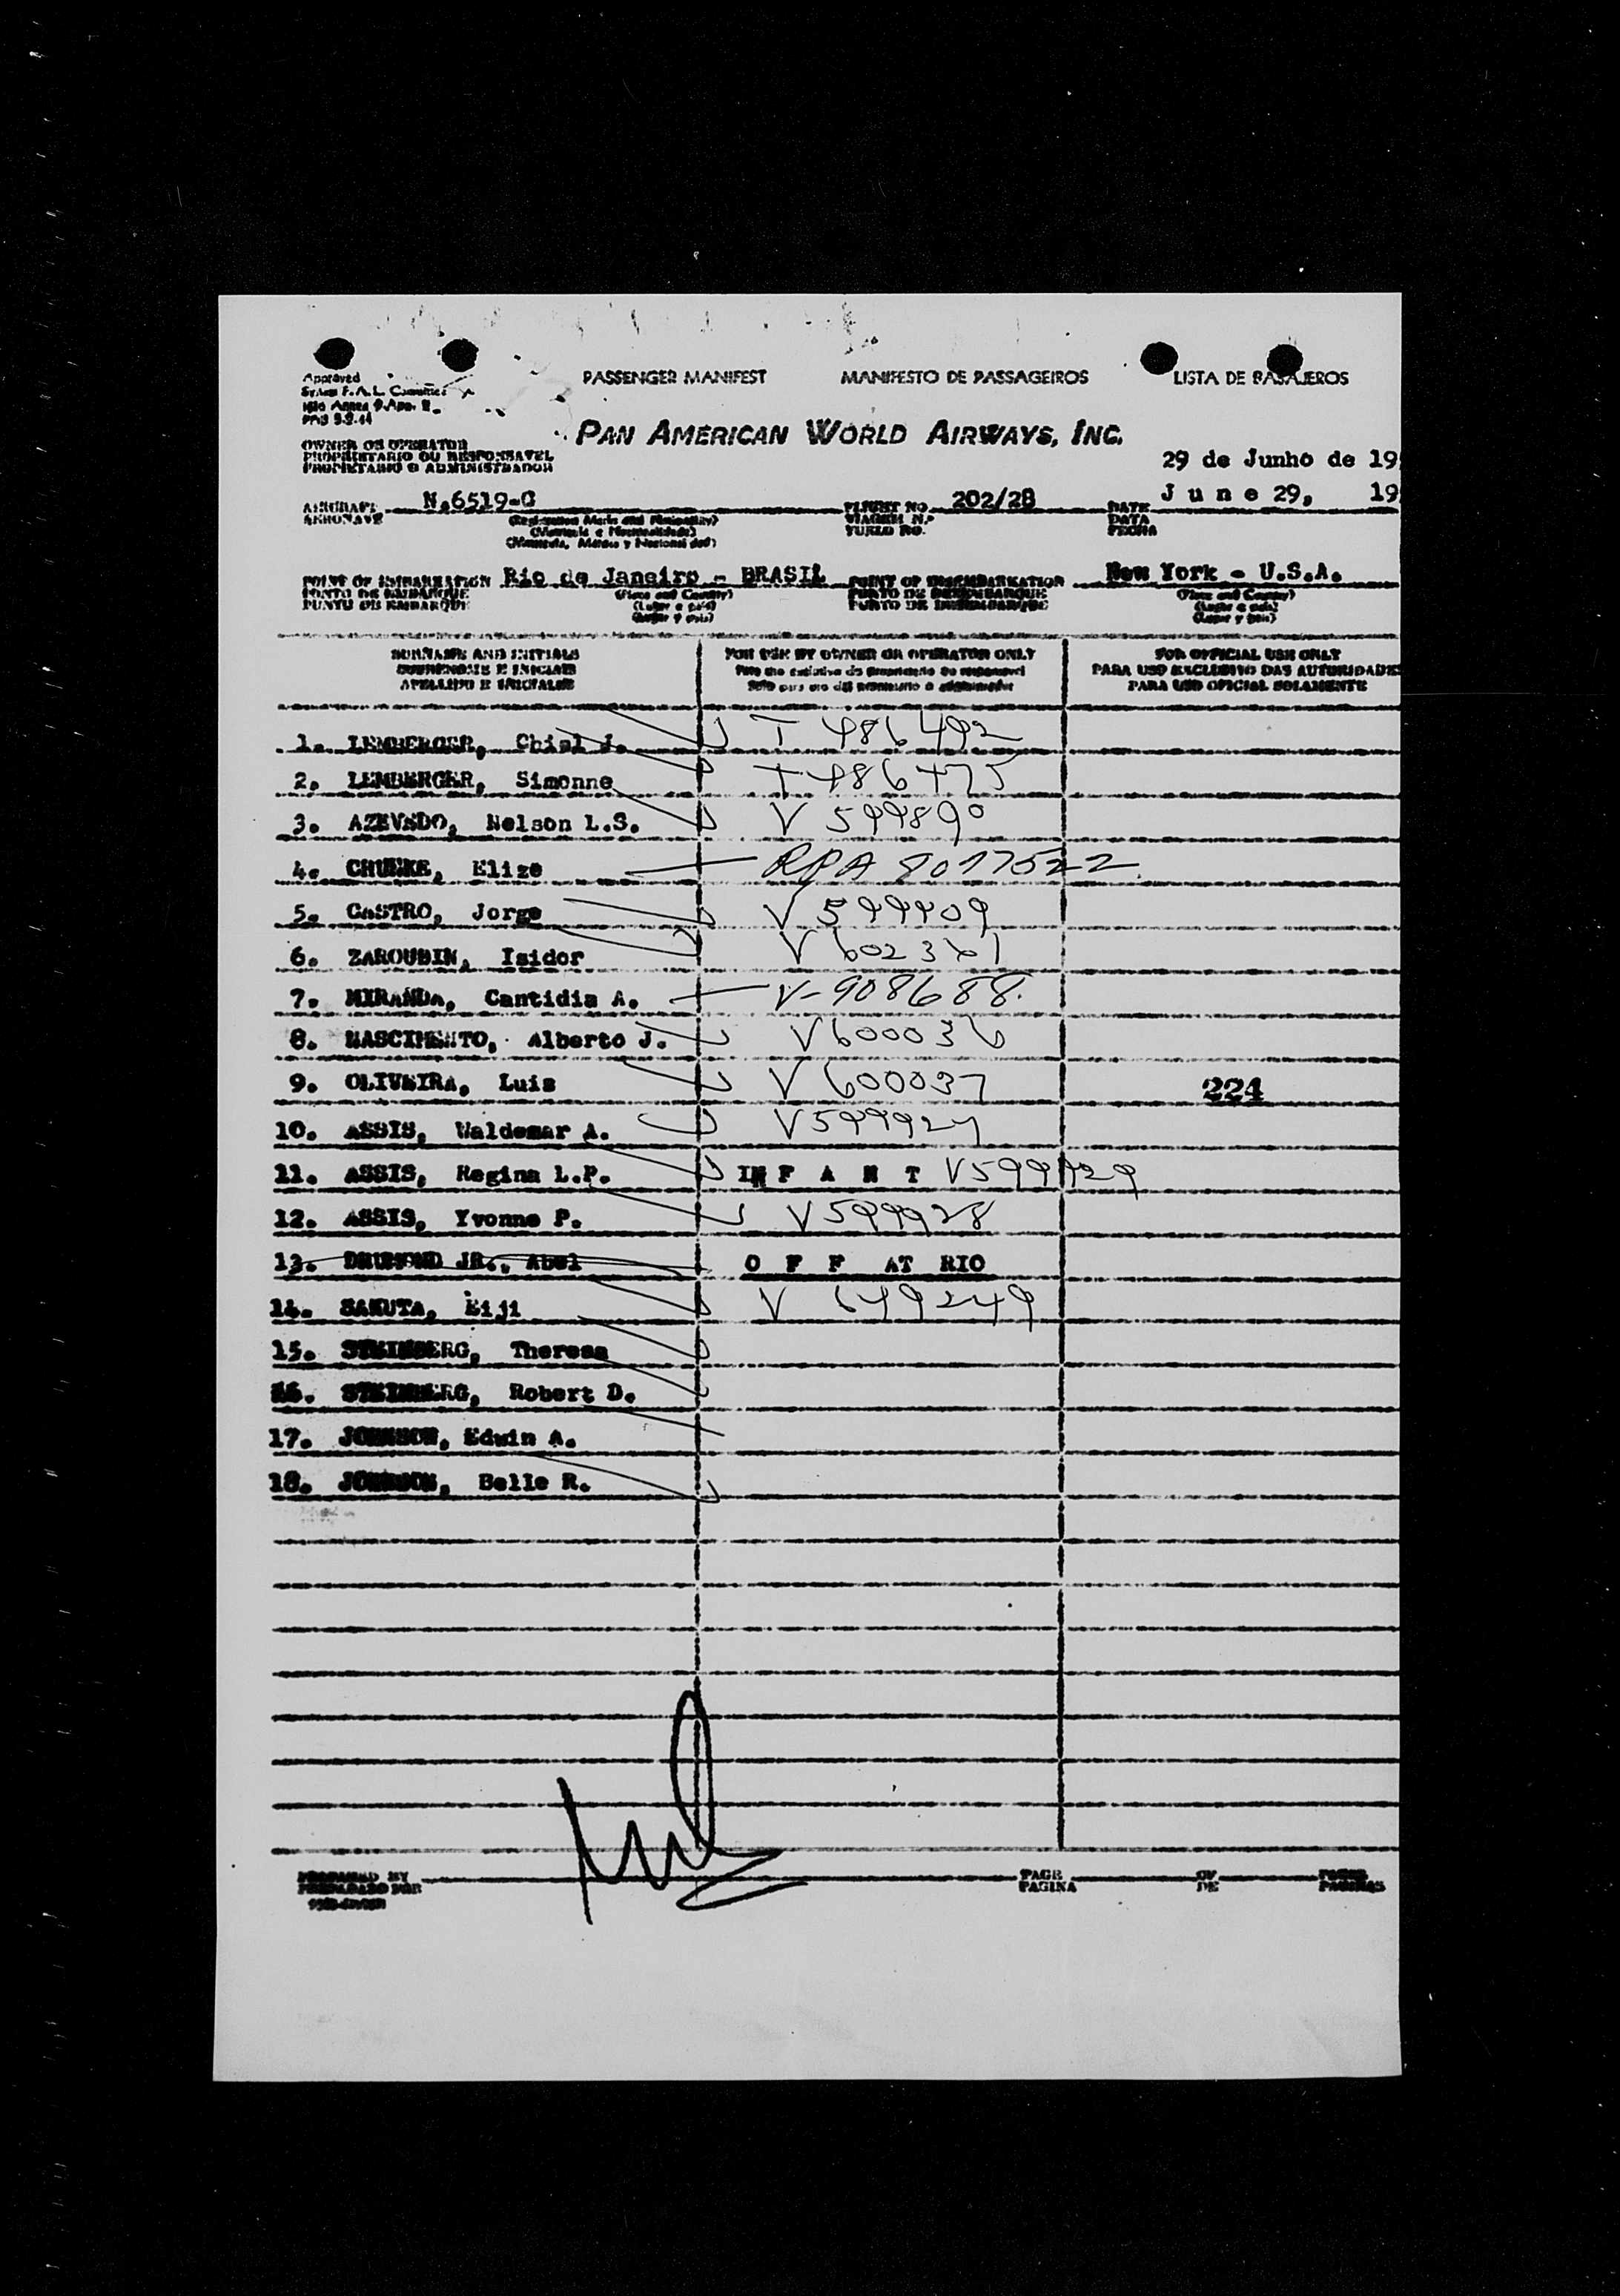 PASSENGER MANIFEST MANIFESTO DE PASSAGEIROS LISTA DE PASAJEROS
Approved
PAN AMERICAN WORLD AIRWAYS, INC.
OWNER OR OPERATOR
PROPRIETARIO OU RESPONSAVEL
PROPIETARIO O ADMINISTRADOR
29 de Junho de 19
AIRCRAFT N.6519-C FLIGHT NO. 202/28 DATE June 29, 19
AERONAVE VIAGEM N.º DATA
VUELO NO. FECHA
(Registration Marks and Nationality)
(Matricula e Nacionalidade)
POINT OF EMBARKATION Rio de Janeiro - BRASIL POINT OF DISEMBARKATION New York - U.S.A.
PONTO DE EMBARQUE (Place and Country) PONTO DE DESEMBARQUE (Place and Country)
PUNTO DE EMBARQUE (Lugar e país) PUNTO DE DESEMBARQUE (Lugar e país)
(Lugar y país) (Lugar y país)
SURNAME AND INITIALS FOR USE BY OWNER OR OPERATOR ONLY FOR OFFICIAL USE ONLY
SOBRENOME E INICIAIS PARA USO EXCLUSIVO DAS AUTORIDADES
APELLIDO E INICIALES PARA USO OFICIAL SOLAMENTE
1. LEMBERGER, J. T 486492
2. LEMBERGER, Simonne T 486475
3. AZEVEDO, Nelson L.S. V 599890
4. Elize 8017522
5. CASTRO, Jorge V 599909
6. ZAROUBIN, Isidor V 602361
7. MIRANDA, Cantidia A. V-908688.
8. NASCIMENTO, Alberto J. V600036
9. OLIVEIRA, Luis V 600037 224
10. ASSIS, Waldemar A. V599927
11. ASSIS, Regina L.P. INFANT V599929
12. ASSIS, Yvonne P. V599928
13. DRUMOND JR., Abel OFF AT RIO
14. SAKUTA, Eiji V 649249
15. STEINBERG, Theresa
16. STEINBERG, Robert D.
17. JOHNSON, Edwin A.
18. JOHNSON, Belle R.
PREPARED BY PAGE OF PAGES
PREPARADO POR PAGINA DE PAGINAS